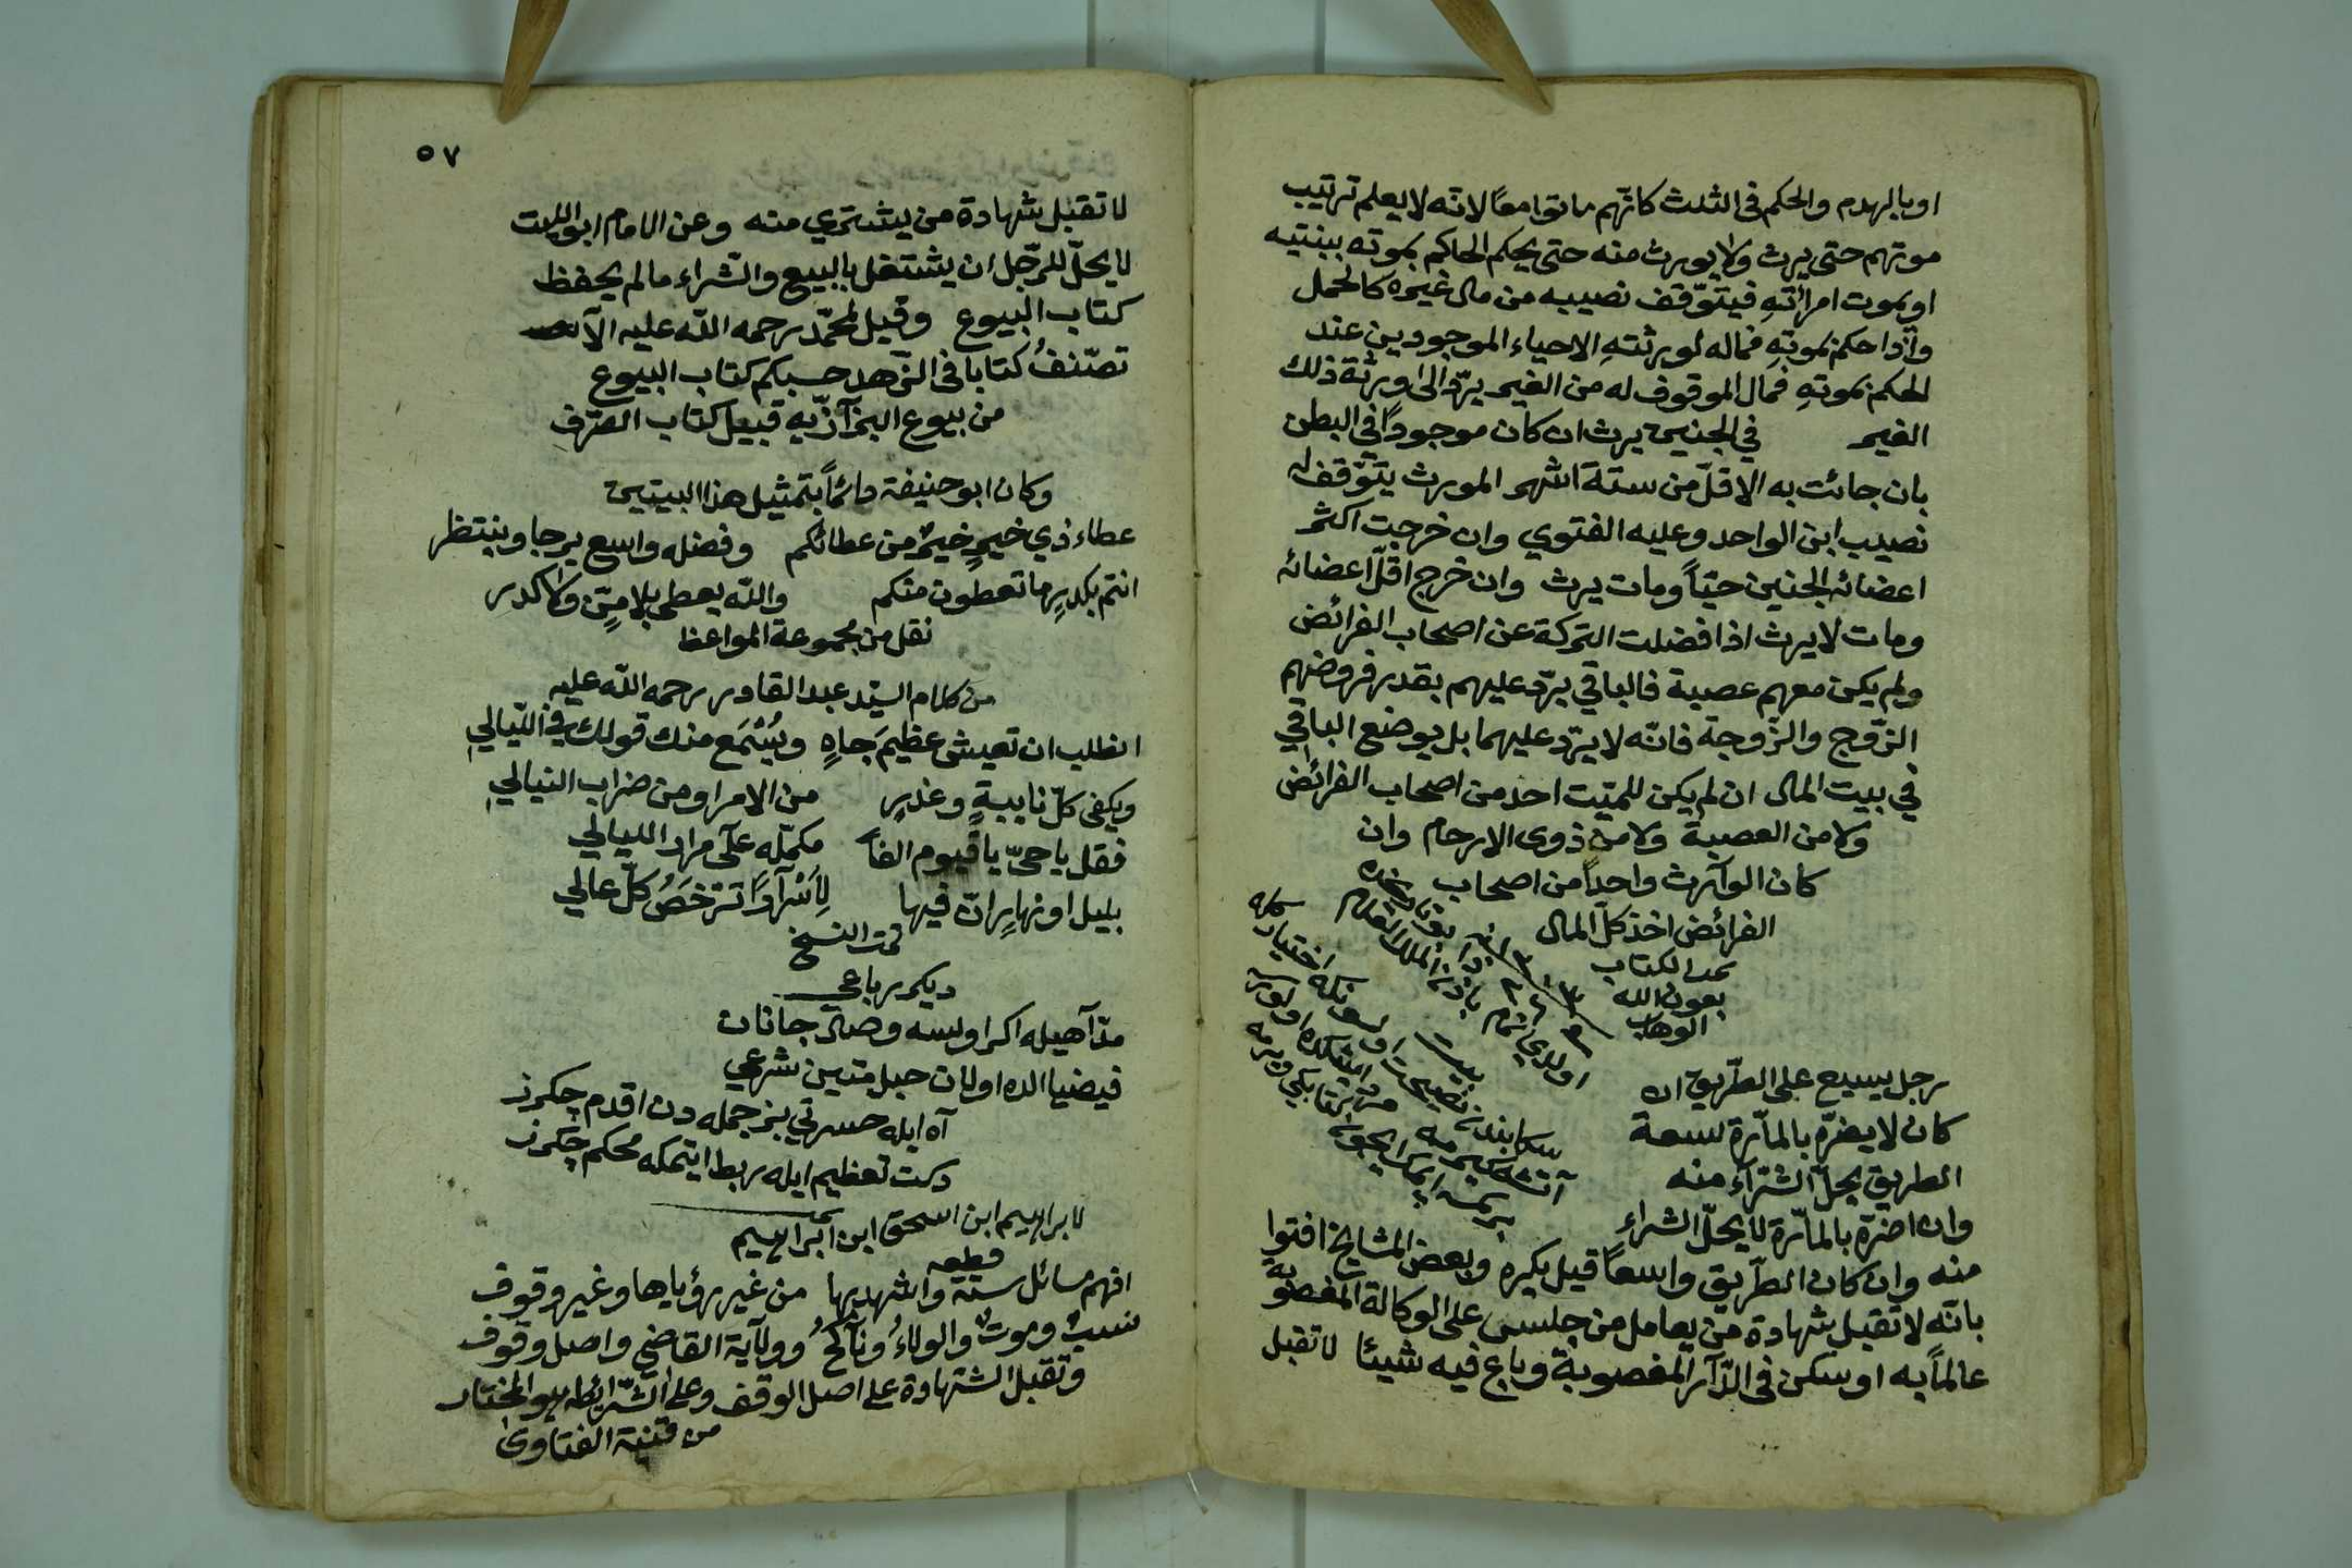 او بالهدم والحكم فى الثلث كانّهم ماتوا معًا لانه لا يعلم ترتيب
موتهم حتى يرث ولا يورث منه حتى يحكم الحاكم بموته ببنتيه
او بموت امرأتهِ فيتوّقف نصيبه من مال غيره كالحمل
واذا حكم بموتهِ فماله لورثتهِ الاحياء الموجودين عند
الحكم بموتهِ فمال الموقوف له من الغير يرّد الى ورثة ذلك
الغير في الجنين يرث ان كان موجوداً في البطن
بان جائت به الاقلّ من ستة اشهر المورث يتوّقف له
نصيب ابن الواحد وعليه الفتوي وان خرجت اكثر
اعضائه الجنين حيّاً ومات يرث وان خرج اقلّ اعضائه
ومات لا يرث اذا فضلت التركة عن اصحاب الفرائض
ولم يكن معهم عصبة فالباقي يرّد عليهم بقدر فروضهم
الزّوج والزّوجة فانّه لا يرّد عليهما بل يوضع الباقي
في بيت المال ان لم يكن للميّت احد من اصحاب الفرائض
ولا من العصبة ولا من ذوى الارحام وان
كان الوآرث واحداً من اصحاب
الفرائض اخذ كلّ المال
تمت الكتاب
بعون الله
الوهاب
رجل يبيع على الطّريق ان
كان لا يضرّه بالمآرّة لسعة
الطريق يحلّ الشرآء منه
وان اضرّه بالمآرّة لا يحلّ الشراء
منه وان كان الطّريق واسعاً قيل يكره وبعض المشايخ افتوا
بانّه لا تقبل شهادة من يعامل من جلس على الوكالة المغصوبة
عالماً به او سكن فى الدّآر المغصوبة وباع فيه شيئا لا تقبل
٥٧
لا تقبل شهادة من يشتري منه وعن الامام ابو الليث
لا يحلّ للرّجل ان يشتغل بالبيع والشراء ما لم يحفظ
كتاب البيوع وقيل لمحمّد رحمه اللّه عليه الآ
تصّنفُ كتابا فى الزّهد حسبكم كتاب البيوع
من بيوع البزآزّيه قبيل كتاب الصّرف
وكان ابو حنيفة دائماً بتمثيل هذا البيتين
عطاء ذي خيرٍ خيرٌ من عطائكم وفضله واسع يرجا وينتظر
انتم بكدرٍ ما تعطون منكم واللّه يعطى بلا منٍّ ولا كدر
نقل من مجموعة المواعظ
من كلام السّيد عبد القادر رحمه اللّه عليه
اتطلب ان تعيش عظيمَ جاهٍ ويُسْمَع منك قولك في اللّيالي
ويكفى كلّ نايبةٍ وغدرٍ من الامراومن ضراب النبالي
فقل يا حىّ يا قيوم الفاً مكمّله علّى مراد الليالي
بليل او نهارٍ انّ فيها لِأَسْرآراً تَرْخَصُ كلّ عالي
تمت النسخ
ديكر رباعي
مدّآهيله اكر اولسه وصال جانان
فيضيا الده اولان حبل متين شرعي
آه ايله حسرتي بز جمله دن اقدم چكرز
دكت تعظيم ايله ربط ايتمكه محكم چكرز
لابراهيم ابن اسحق ابن ابراهيم
قطعه
افهم مسائل ستة واشهد بها من غير رؤياها وغير وقوف
نسبٌ وموتٌ والولاءُ وناكحٌ وولآية القاضي واصل وقوف
وتقبل الشهادة على اصل الوقف وعلى الشّرائطه هو المختار
من قنية الفتاوى